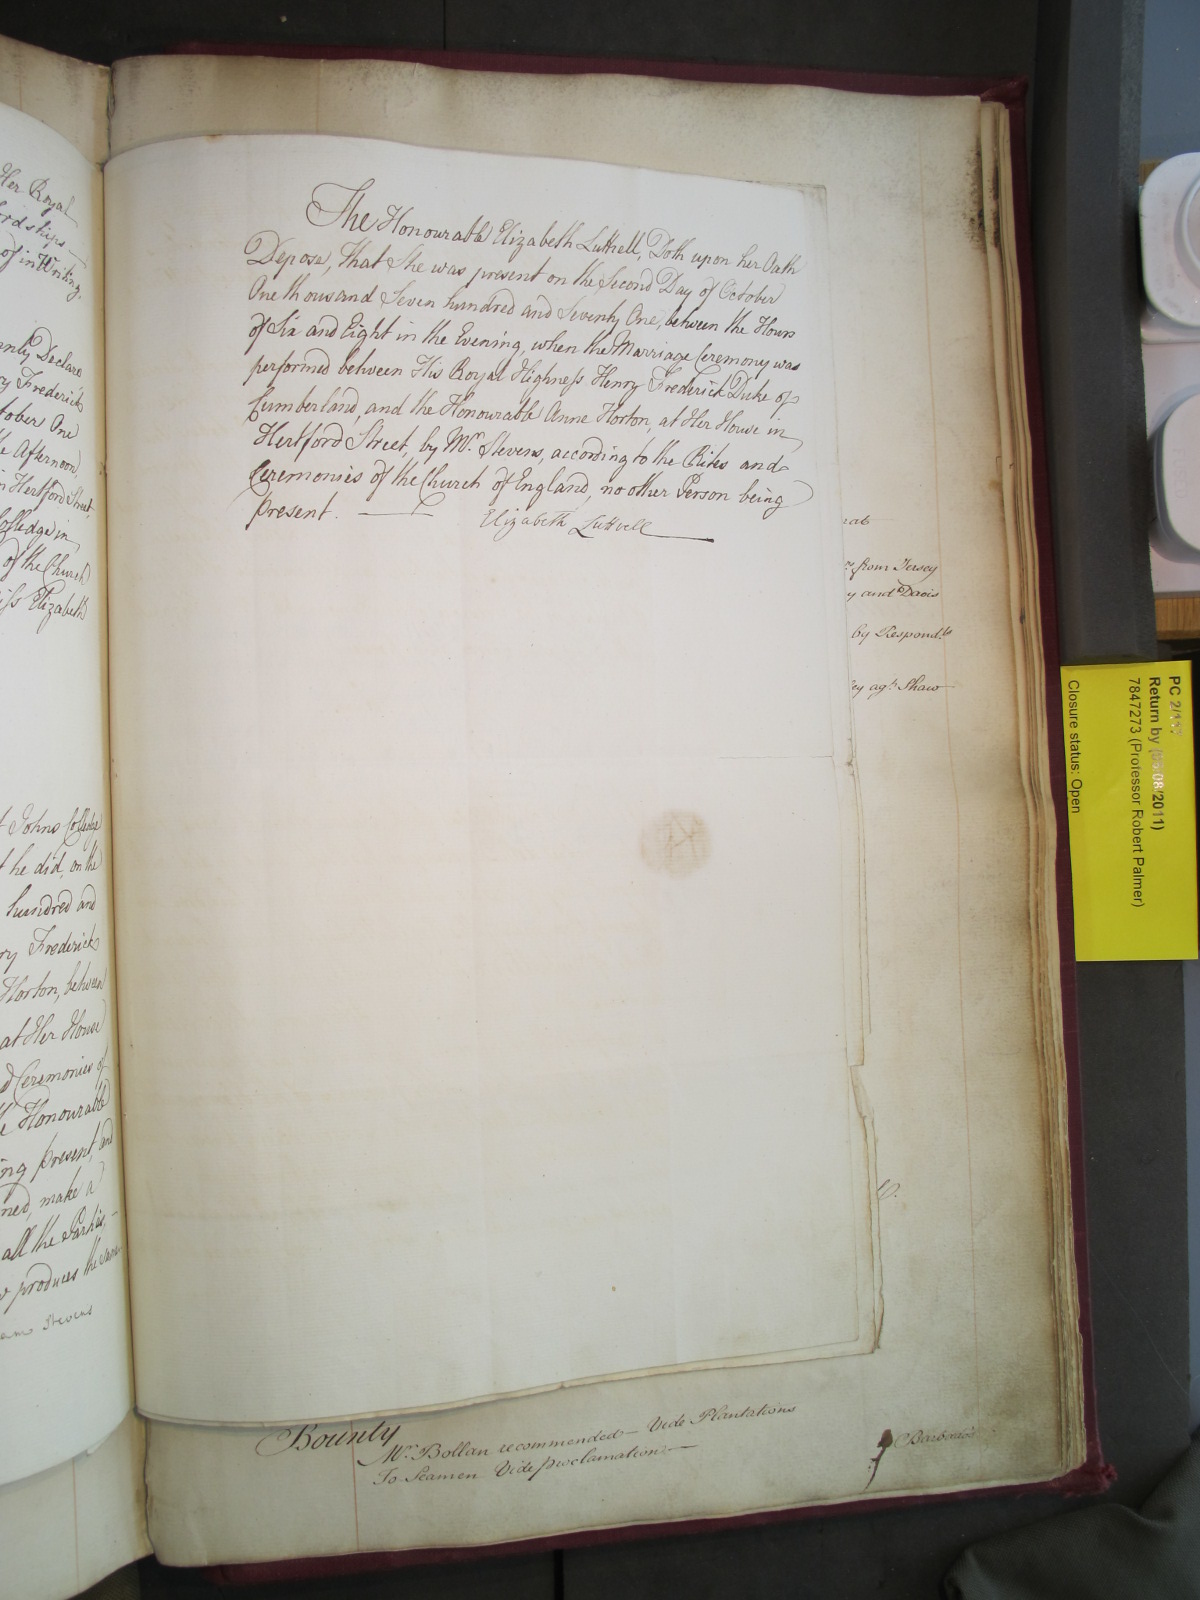 Her Royal
ordships
of in Writing.
Declare
ry Frederick
tober One
Afternoon
n Hertford Street,
Colledge in
of the Church
iss Elizabeth
t Johns Colledge
t he did, on the
hundred and
ry Frederick
Horton, between
at Her House
d Ceremonies of
e Honourable
ing present, and
ned, make a
all the Parties,
w produces the same
am Stevens
The Honourable Elizabeth Luttrell, Doth upon her Oath
Depose, That She was present on the Second Day of October
One thousand Seven hundred and Seventy One, between the Hours
of Six and Eight in the Evening, when the Marriage Ceremony was
performed between His Royal Highness Henry Frederick Duke of
Cumberland, and the Honourable Anne Horton, at Her House in
Hertford Street, by Mr. Stevens, according to the Rites and
Ceremonies of the Church of England, no other Person being
present.
Elizabeth Luttrell
from Jersey
y and Davis
by Respond.ts
ey agt. Shaw
Bounty
Mr. Bollan recommended - Vide Plantations
To Seamen Vide Proclamation
PC 2/117
Return by (05/08/2011)
7847273 (Professor Robert Palmer)
Closure status: Open